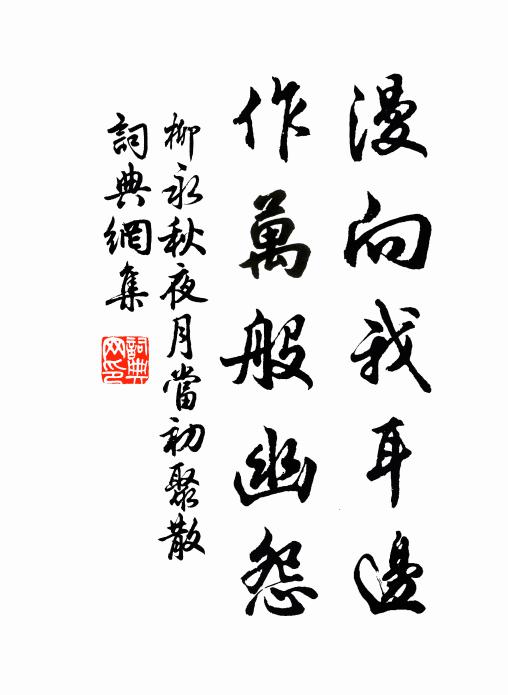 漫向我耳邊
作萬般幽怨
柳永秋夜月當初聚散
詞典網集
詞典
网印